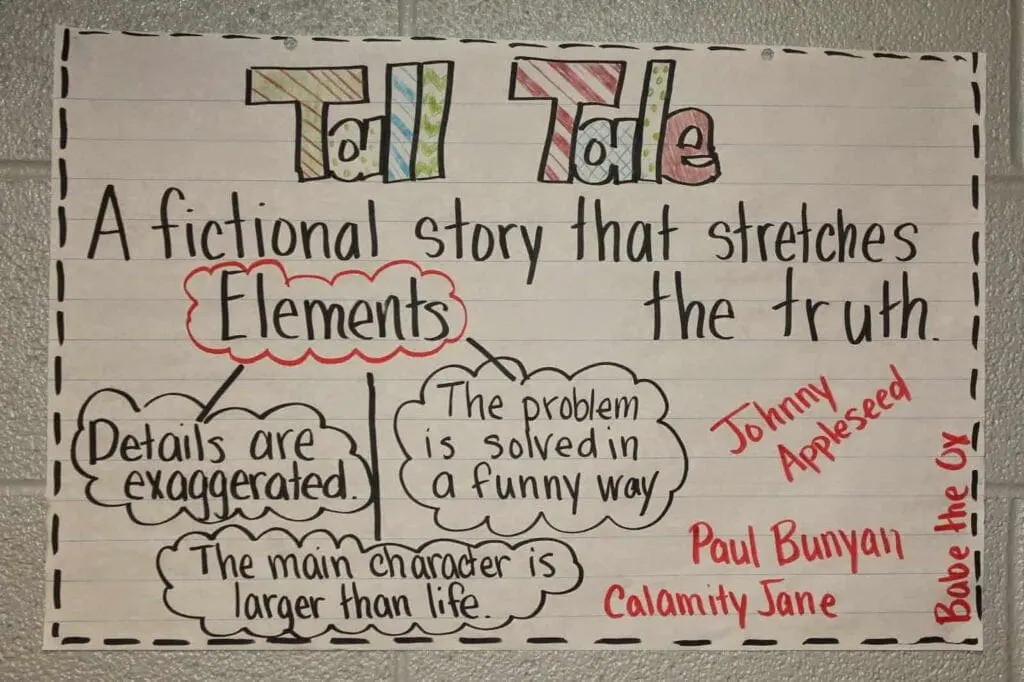 Tall Tale
A fictional story that stretches
the truth.
Elements
Details are
exaggerated.
The problem
is solved in
a funny way
The main character is
larger than life.
Johnny
Appleseed
Paul Bunyan
Calamity Jane
Babe the Ox